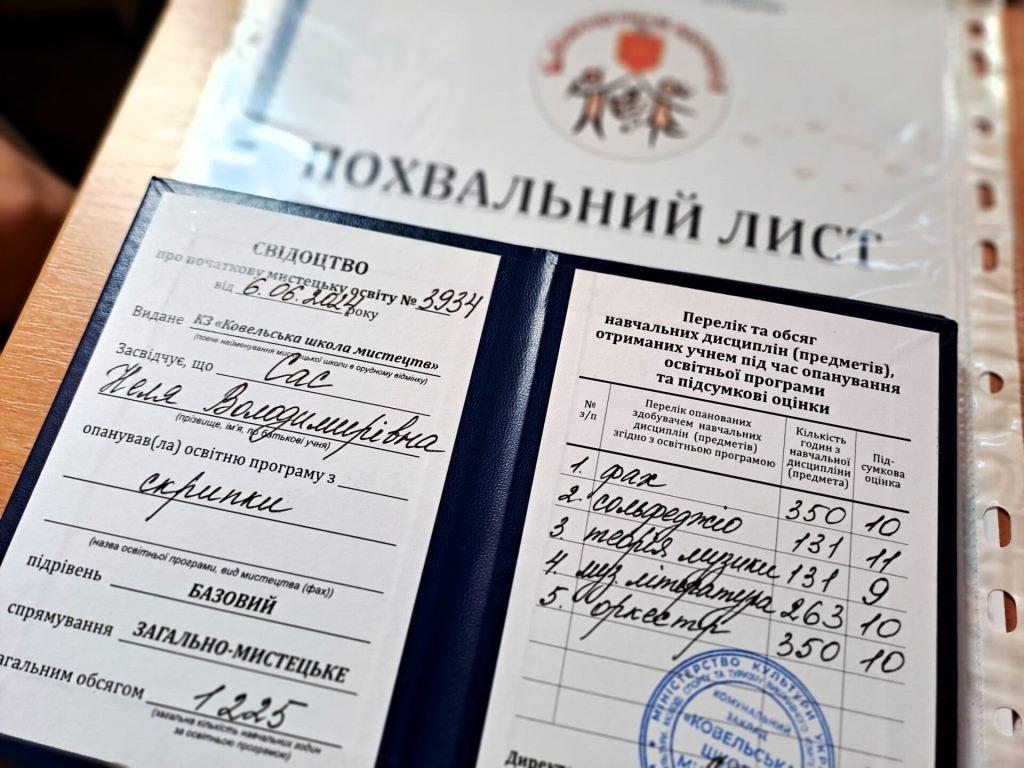 ПОХВАЛЬНИЙ ЛИСТ
СВІДОЦТВО
про початкову мистецьку освіту № 3934
від 6.06.2024 року
Видане КЗ «Ковельська школа мистецтв»
(повне найменування мистецької школи в орудному відмінку)
Засвідчує, що Сас
Неля Володимирівна
(прізвище, ім'я, по батькові учня)
опанував(ла) освітню програму з
скрипки
(назва освітньої програми, вид мистецтва (фах))
підрівень БАЗОВИЙ
спрямування ЗАГАЛЬНО-МИСТЕЦЬКЕ
загальним обсягом 1225
(загальна кількість навчальних годин
за освітньою програмою)
Перелік та обсяг
навчальних дисциплін (предметів),
отриманих учнем під час опанування
освітньої програми
та підсумкові оцінки
№ з/п
Перелік опанованих
здобувачем навчальних
дисциплін (предметів)
згідно з освітньою програмою
Кількість
годин з
навчальної
дисципліни
(предмета)
Під-
сумкова
оцінка
1. фах 350 10
2. сольфеджіо 131 11
3. теорія музики 131 9
4. муз. література 263 10
5. оркестр 350 10
МІНІСТЕРСТВО КУЛЬТУРИ
КОМУНАЛЬНИЙ
ЗАКЛАД
«КОВЕЛЬСЬКА
ШКОЛА
Директ